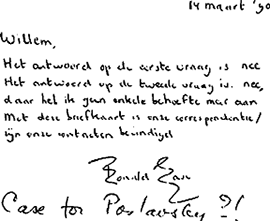 14 maart '90
Willem,
Het antwoord op de eerste vraag is nee
Het antwoord op de tweede vraag is: nee,
daar heb ik geen enkele behoefte meer aan
Met deze briefkaart is onze correspondentie/
zijn onze contacten beëindigd
Case for Poslavsky ?!